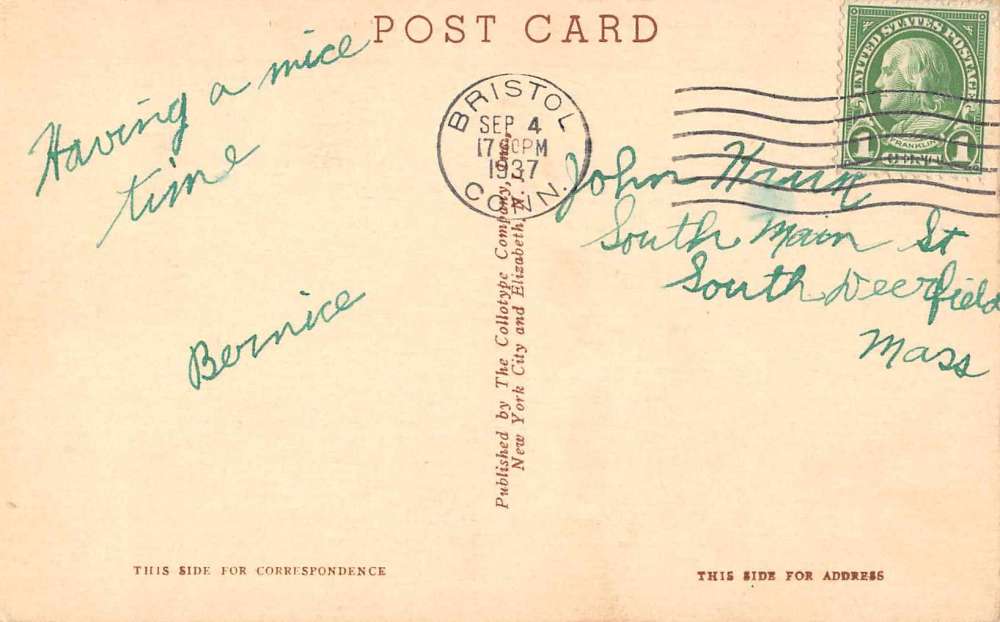 POST CARD
Having a nice
time
Bernice
BRISTOL
SEP 4
1937
CONN.
UNITED STATES POSTAGE
FRANKLIN
1 CENT 1
John
South Main St
South Deerfield
Mass
Published by The Collotype Company, Inc.,
New York City and Elizabeth, N. J.
THIS SIDE FOR CORRESPONDENCE
THIS SIDE FOR ADDRESS